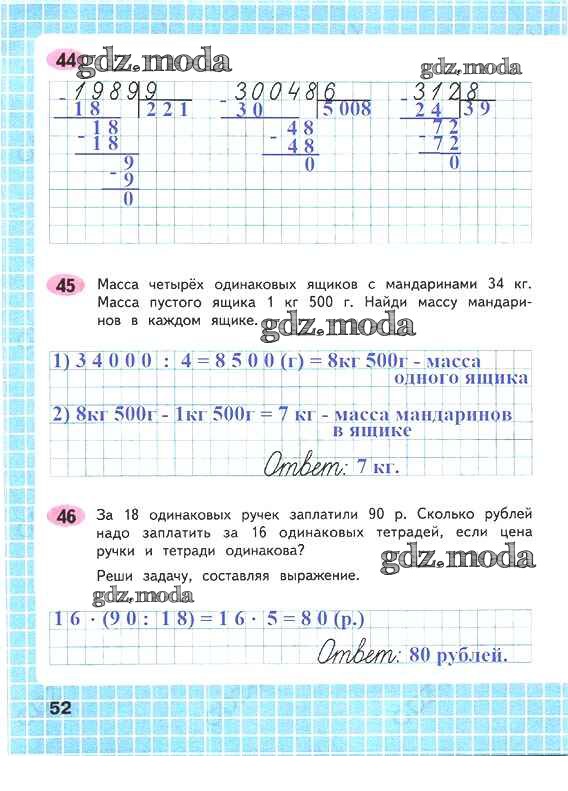 44 gdz.moda
gdz.moda
19899 300486 3128
- 18 221 - 30 5 008 - 24 39
- 18 - 48 - 72
18 48 72
- 9 0 0
9
0
45 Масса четырёх одинаковых ящиков с мандаринами 34 кг.
Масса пустого ящика 1 кг 500 г. Найди массу мандари-
нов в каждом ящике. gdz.moda
1) 3 4 0 0 0 : 4 = 8 5 0 0 (г) = 8кг 500г - масса
одного ящика
2) 8кг 500г - 1кг 500г = 7 кг - масса мандаринов
в ящике
Ответ: 7 кг.
46 За 18 одинаковых ручек заплатили 90 р. Сколько рублей
надо заплатить за 16 одинаковых тетрадей, если цена
ручки и тетради одинакова?
gdz.moda
Реши задачу, составляя выражение.
gdz.moda
1 6 · (9 0 : 1 8) = 1 6 · 5 = 8 0 (р.)
Ответ: 80 рублей.
52